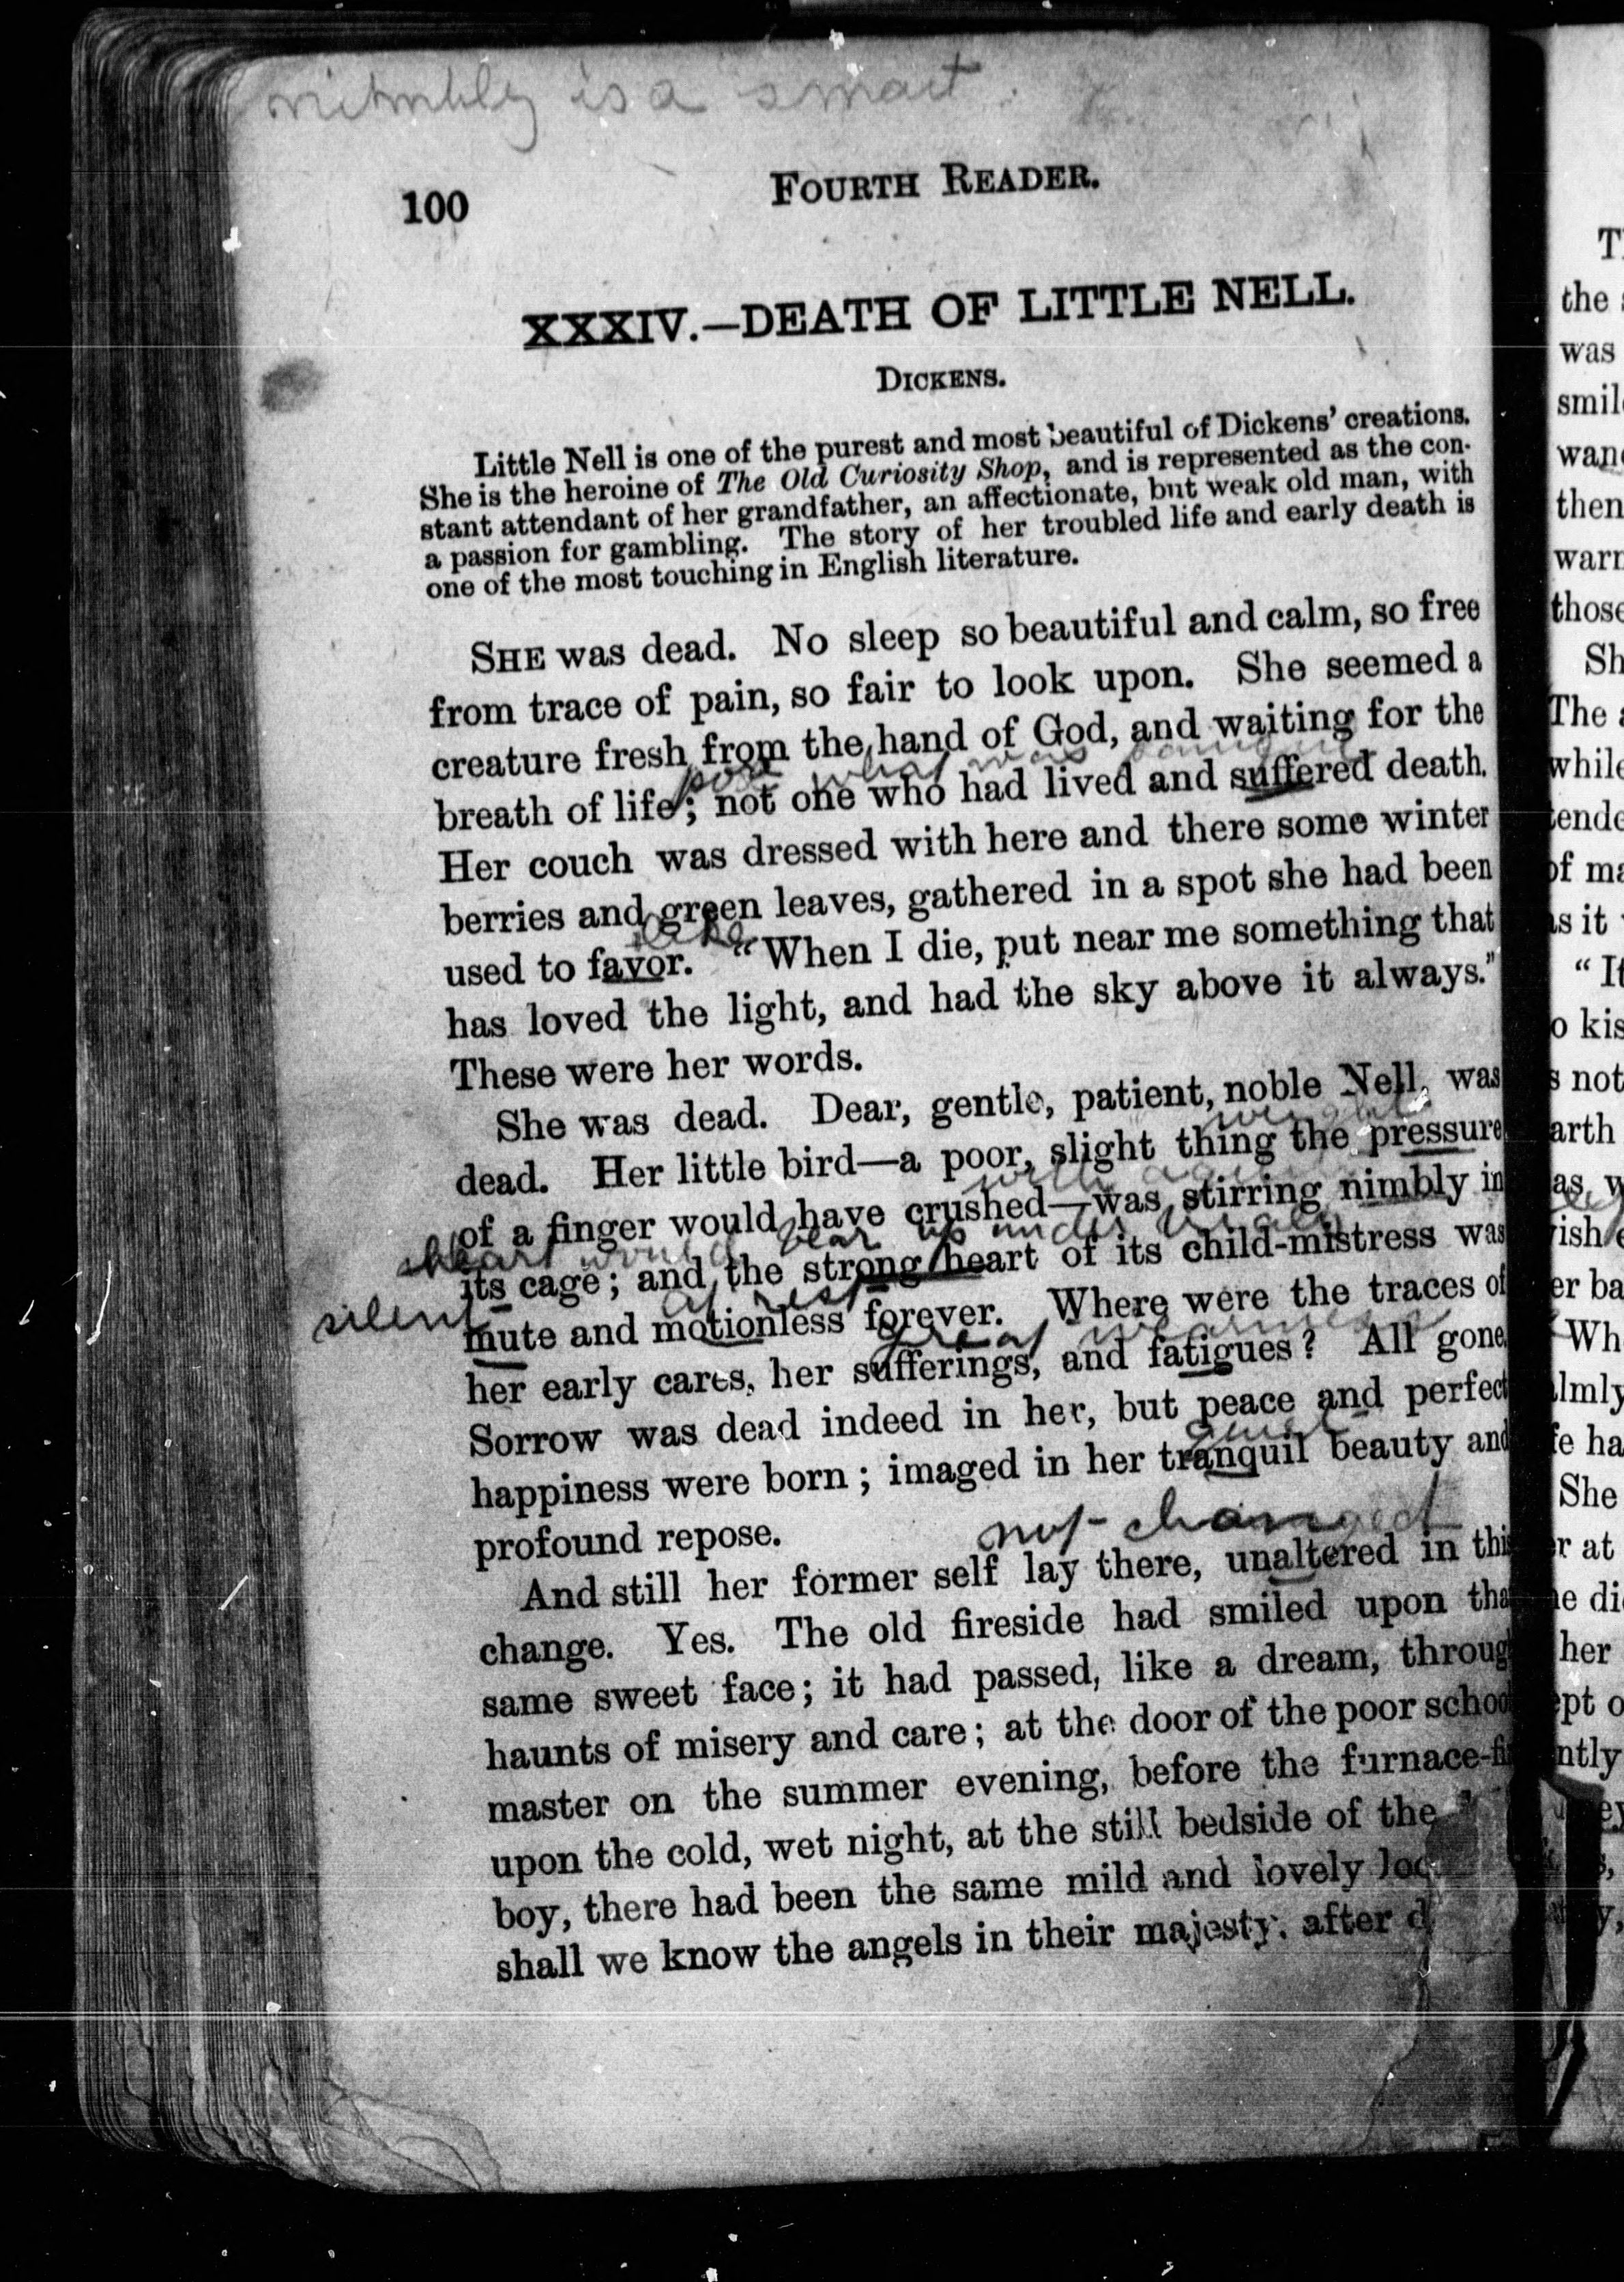 nimbly is a smart
100
FOURTH READER.
XXXIV.—DEATH OF LITTLE NELL.
DICKENS.
Little Nell is one of the purest and most beautiful of Dickens' creations.
She is the heroine of The Old Curiosity Shop, and is represented as the con-
stant attendant of her grandfather, an affectionate, but weak old man, with
a passion for gambling. The story of her troubled life and early death is
one of the most touching in English literature.
SHE was dead. No sleep so beautiful and calm, so free
from trace of pain, so fair to look upon. She seemed a
creature fresh from the hand of God, and waiting for the
what was
breath of life; not one who had lived and suffered death.
Her couch was dressed with here and there some winter
berries and green leaves, gathered in a spot she had been
like
used to favor. "When I die, put near me something that
has loved the light, and had the sky above it always."
These were her words.
She was dead. Dear, gentle, patient, noble Nell, was
weight
dead. Her little bird—a poor, slight thing the pressure
with
of a finger would have crushed—was stirring nimbly in
heart would bear up under
its cage; and the strong heart of its child-mistress was
silent at rest
mute and motionless forever. Where were the traces of
great weariness
her early cares, her sufferings, and fatigues? All gone
Sorrow was dead indeed in her, but peace and perfect
quiet
happiness were born; imaged in her tranquil beauty and
profound repose.
not changed
And still her former self lay there, unaltered in this
change. Yes. The old fireside had smiled upon tha
same sweet face; it had passed, like a dream, throug
haunts of misery and care; at the door of the poor schoo
master on the summer evening, before the furnace-fi
upon the cold, wet night, at the still bedside of the
boy, there had been the same mild and lovely loo
shall we know the angels in their majesty, after d
T
the
was
smil
wan
then
warn
those
Sh
The
while
tende
of ma
as it
"It
o kis
s not
arth
as w
ish
er ba
Wh
lmly
fe ha
She
r at
e di
her
ept o
ntly